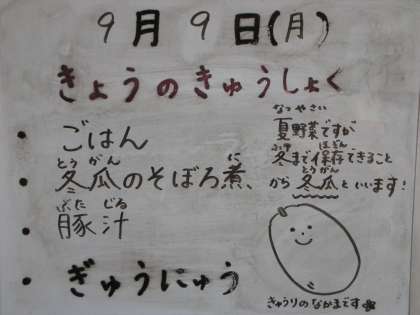 9月9日(月)
きょうのきゅうしょく
・ごはん
とうがん に
・冬瓜のそぼろ煮、
ぶた じる
・豚汁
・ぎゅうにゅう
なつやさい
夏野菜ですが、
ふゆ ほぞん
冬まで保存できること
とうがん
から冬瓜といいます!
きゅうりのなかまです